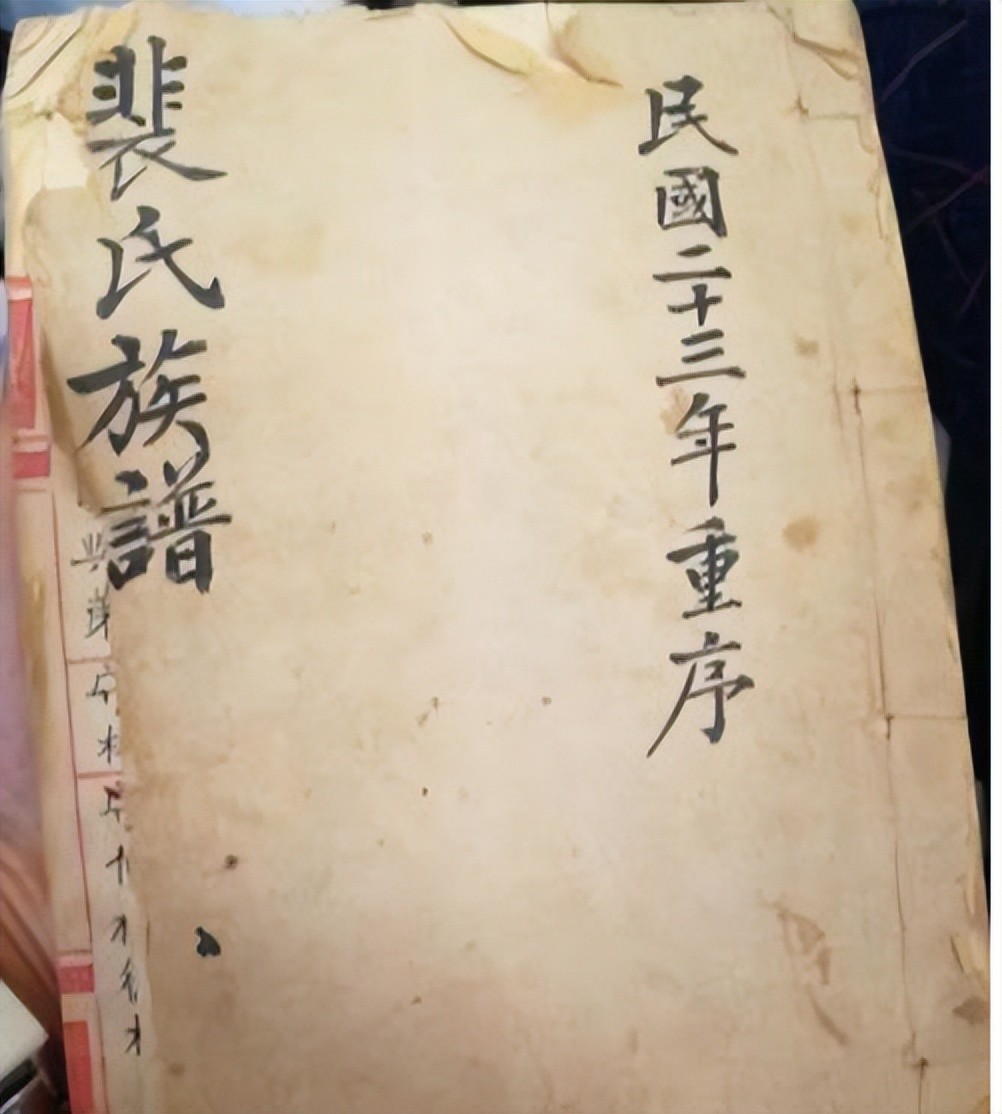 民國二十三年重序
裴氏族譜